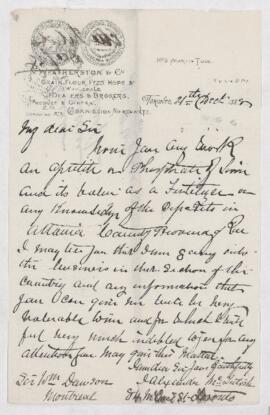 WEATHERSTON & Co
GRAIN, FLOUR, FEED, HOPS &
WHOLESALE
DEALERS & BROKERS,
PRODUCE & GENERAL
COMMISSION MERCHANTS.
Toronto 21st Dec 1882
My dear Sir
Have you any Work
on Phosphate of Lime
and its Value as a Fertilizer or
any Knowledge of the Deposits in
Ottawa County Province of Que
I may tell you that I am going into
the business in that Section of the
Country and any information that
you can give me will be very
valuable and for which I will
feel very much indebted to you for any
attention you may give this Matter
I remain Sir Yours faithfully
Alexander McIntosh
Sir Wm Dawson
Montreal
St Toronto